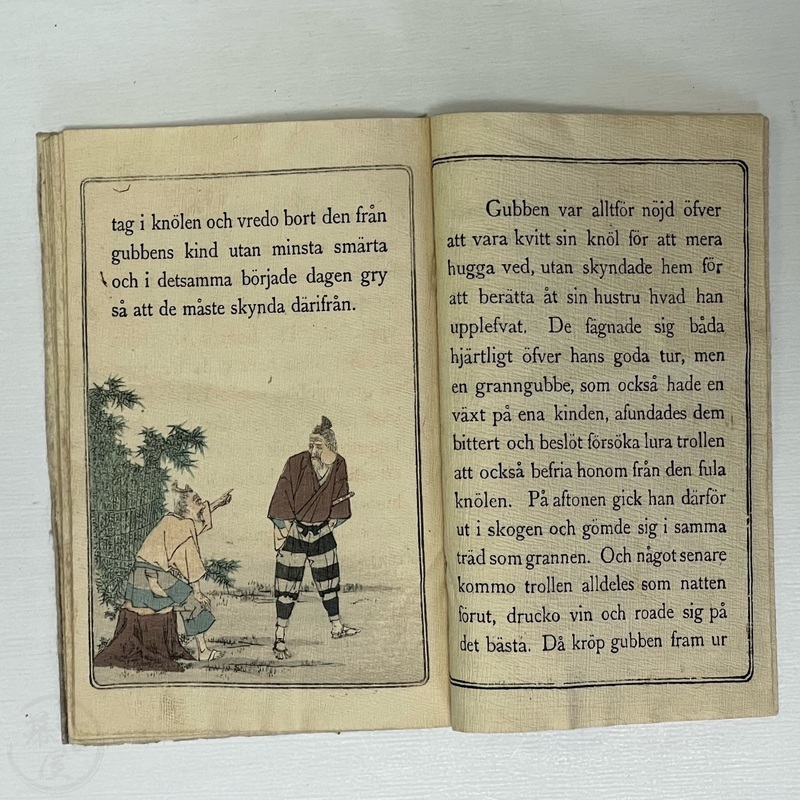 tag i knölen och vredo bort den från
gubbens kind utan minsta smärta
och i detsamma började dagen gry
så att de måste skynda därifrån.
Gubben var alltför nöjd öfver
att vara kvitt sin knöl för att mera
hugga ved, utan skyndade hem för
att berätta åt sin hustru hvad han
upplefvat. De fägnade sig båda
hjärtligt öfver hans goda tur, men
en granngubbe, som också hade en
växt på ena kinden, afundades dem
bittert och beslöt försöka lura trollen
att också befria honom från den fula
knölen. På aftonen gick han därför
ut i skogen och gömde sig i samma
träd som grannen. Och något senare
kommo trollen alldeles som natten
förut, drucko vin och roade sig på
det bästa. Då kröp gubben fram ur